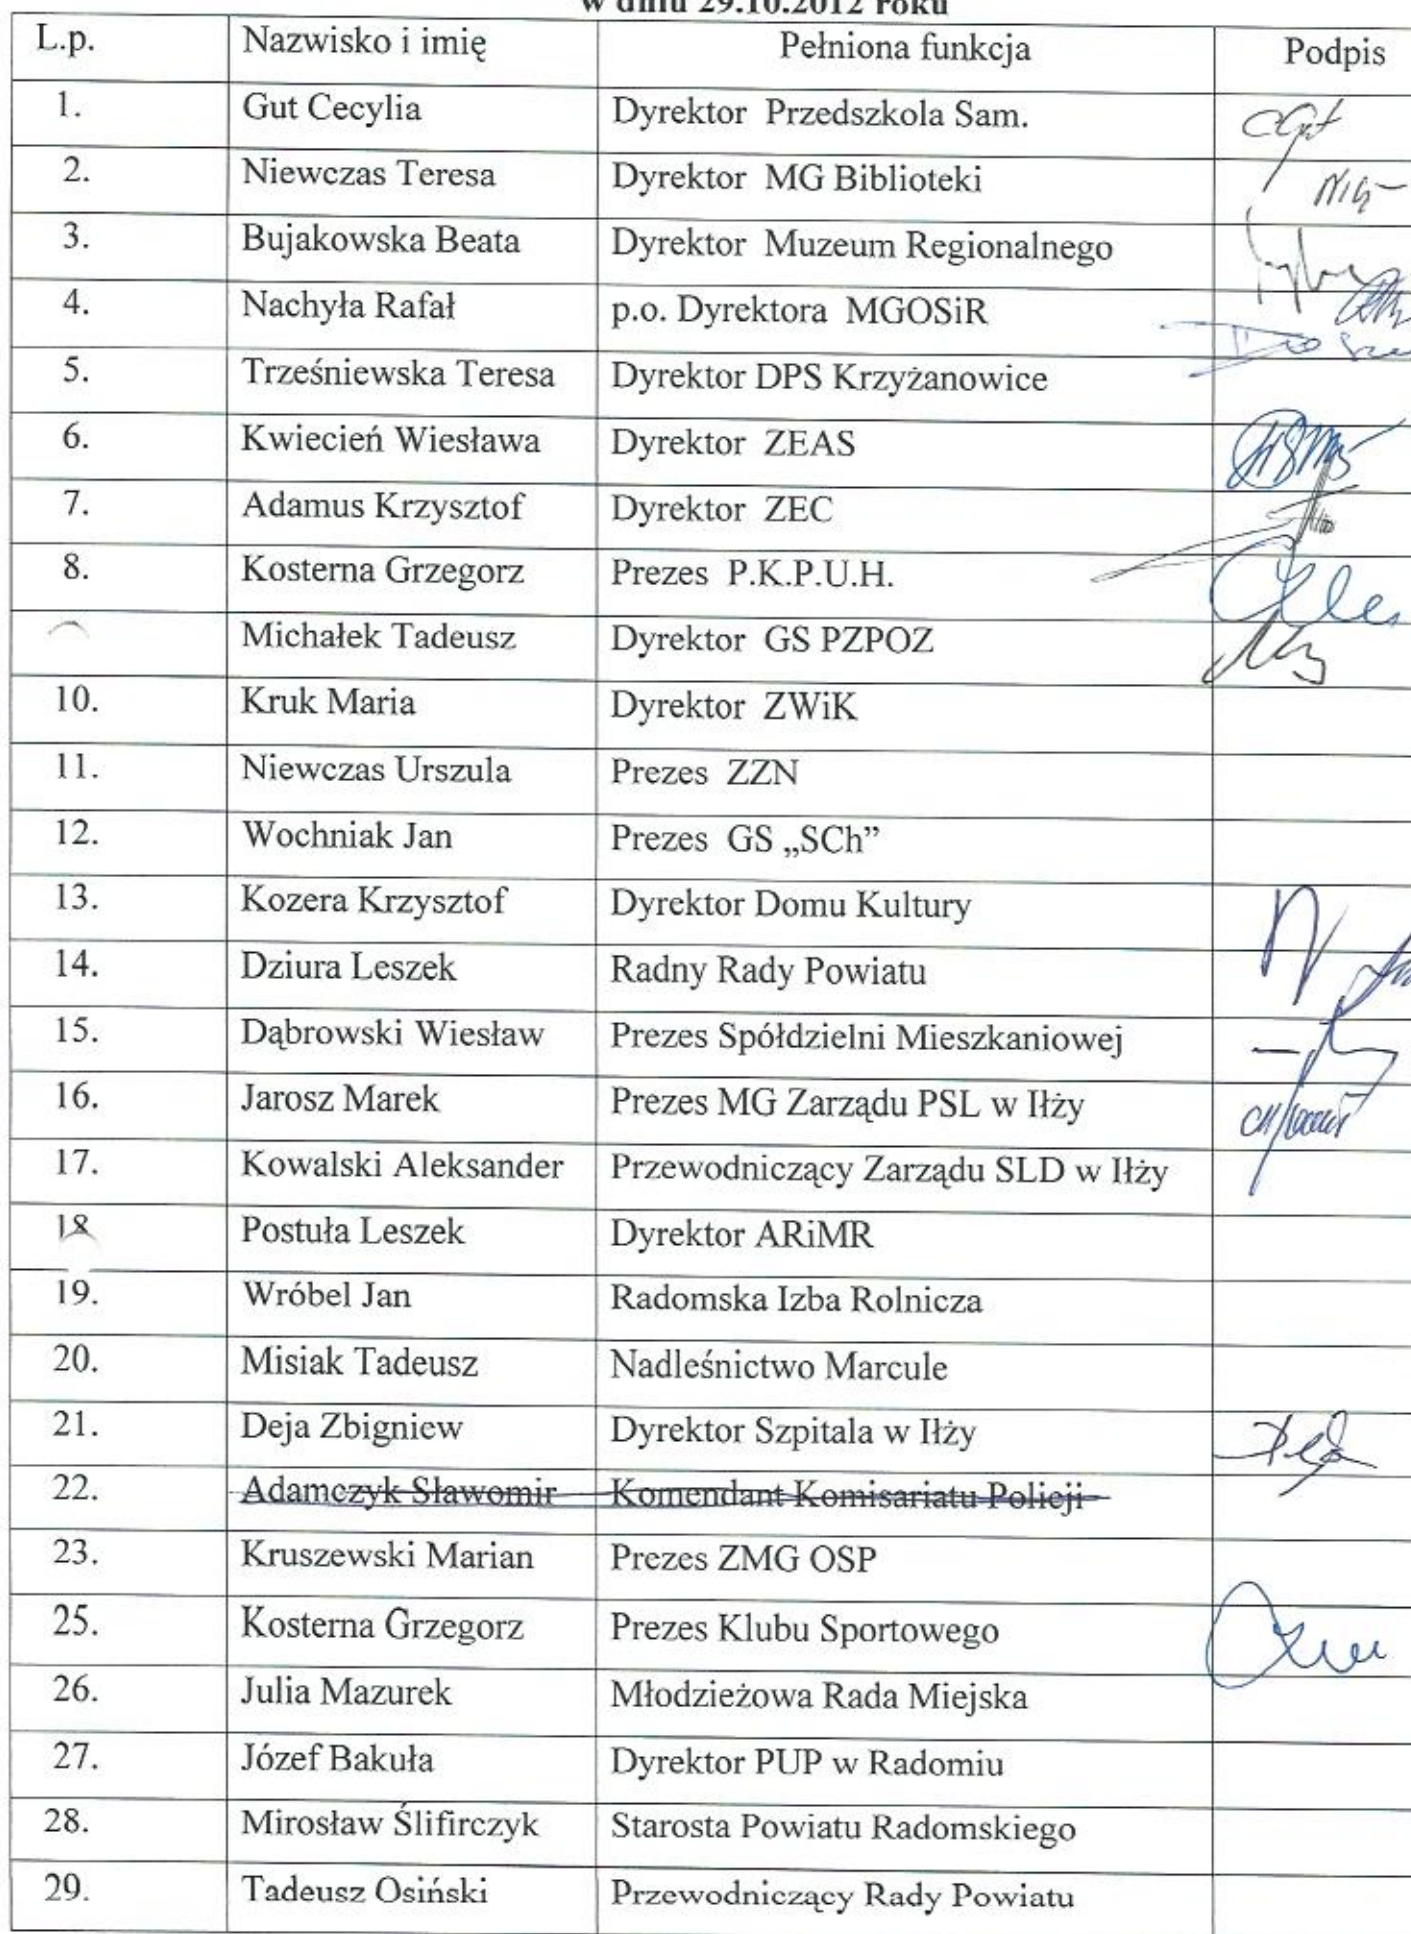 w dniu 29.10.2012 roku
L.p. Nazwisko i imię Pełniona funkcja Podpis
1. Gut Cecylia Dyrektor Przedszkola Sam.
2. Niewczas Teresa Dyrektor MG Biblioteki
3. Bujakowska Beata Dyrektor Muzeum Regionalnego
4. Nachyła Rafał p.o. Dyrektora MGOSiR
5. Trześniewska Teresa Dyrektor DPS Krzyżanowice
6. Kwiecień Wiesława Dyrektor ZEAS
7. Adamus Krzysztof Dyrektor ZEC
8. Kosterna Grzegorz Prezes P.K.P.U.H.
Michałek Tadeusz Dyrektor GS PZPOZ
10. Kruk Maria Dyrektor ZWiK
11. Niewczas Urszula Prezes ZZN
12. Wochniak Jan Prezes GS „SCh”
13. Kozera Krzysztof Dyrektor Domu Kultury
14. Dziura Leszek Radny Rady Powiatu
15. Dąbrowski Wiesław Prezes Spółdzielni Mieszkaniowej
16. Jarosz Marek Prezes MG Zarządu PSL w Iłży
17. Kowalski Aleksander Przewodniczący Zarządu SLD w Iłży
18 Postuła Leszek Dyrektor ARiMR
19. Wróbel Jan Radomska Izba Rolnicza
20. Misiak Tadeusz Nadleśnictwo Marcule
21. Deja Zbigniew Dyrektor Szpitala w Iłży
22. Adamczyk Sławomir Komendant Komisariatu Policji
23. Kruszewski Marian Prezes ZMG OSP
25. Kosterna Grzegorz Prezes Klubu Sportowego
26. Julia Mazurek Młodzieżowa Rada Miejska
27. Józef Bakuła Dyrektor PUP w Radomiu
28. Mirosław Ślifirczyk Starosta Powiatu Radomskiego
29. Tadeusz Osiński Przewodniczący Rady Powiatu